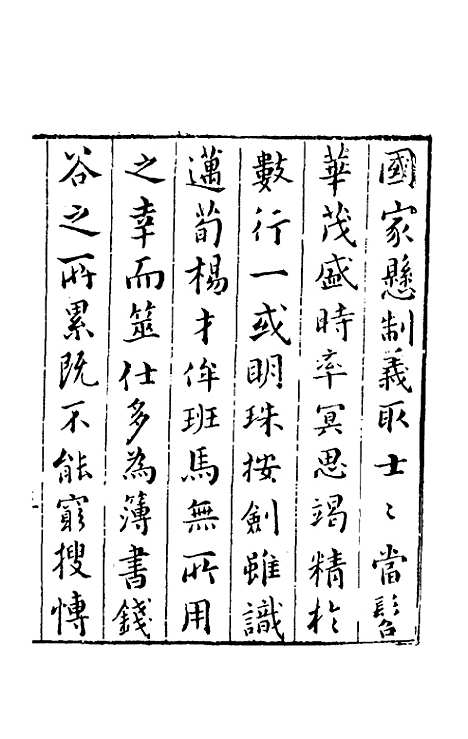 國家懸制義取士〻當髫
華茂盛時率冥思竭精於
數行一或明珠按劍雖識
邁荀楊才侔班馬無所用
之幸而筮仕多為簿書錢
谷之所累既不能窮搜博